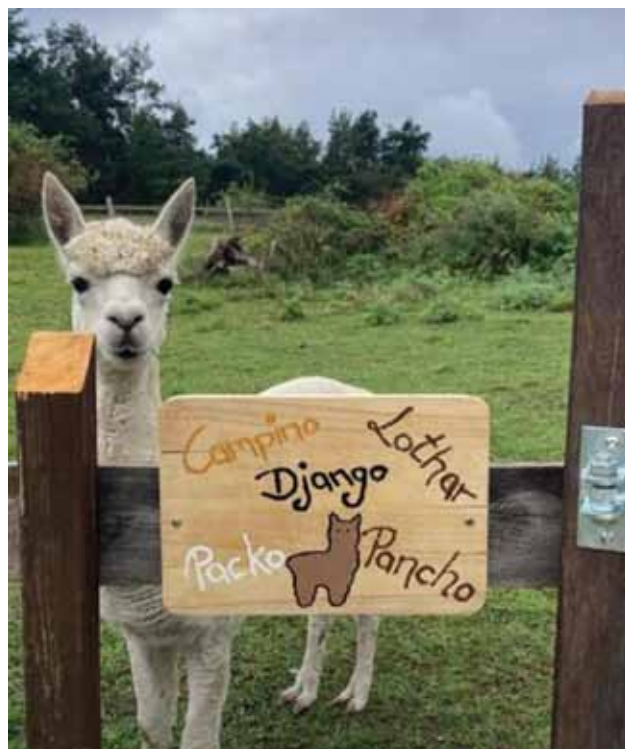 Campino
Lothar
Django
Packo
Pancho